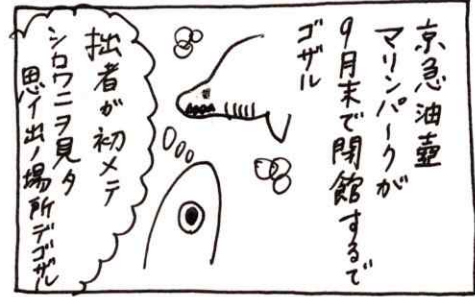 京急油壷
マリンパークが
9月末で閉館するで
ゴザル
拙者が初メテ
シロワニヲ見タ
思イ出ノ場所デゴザル